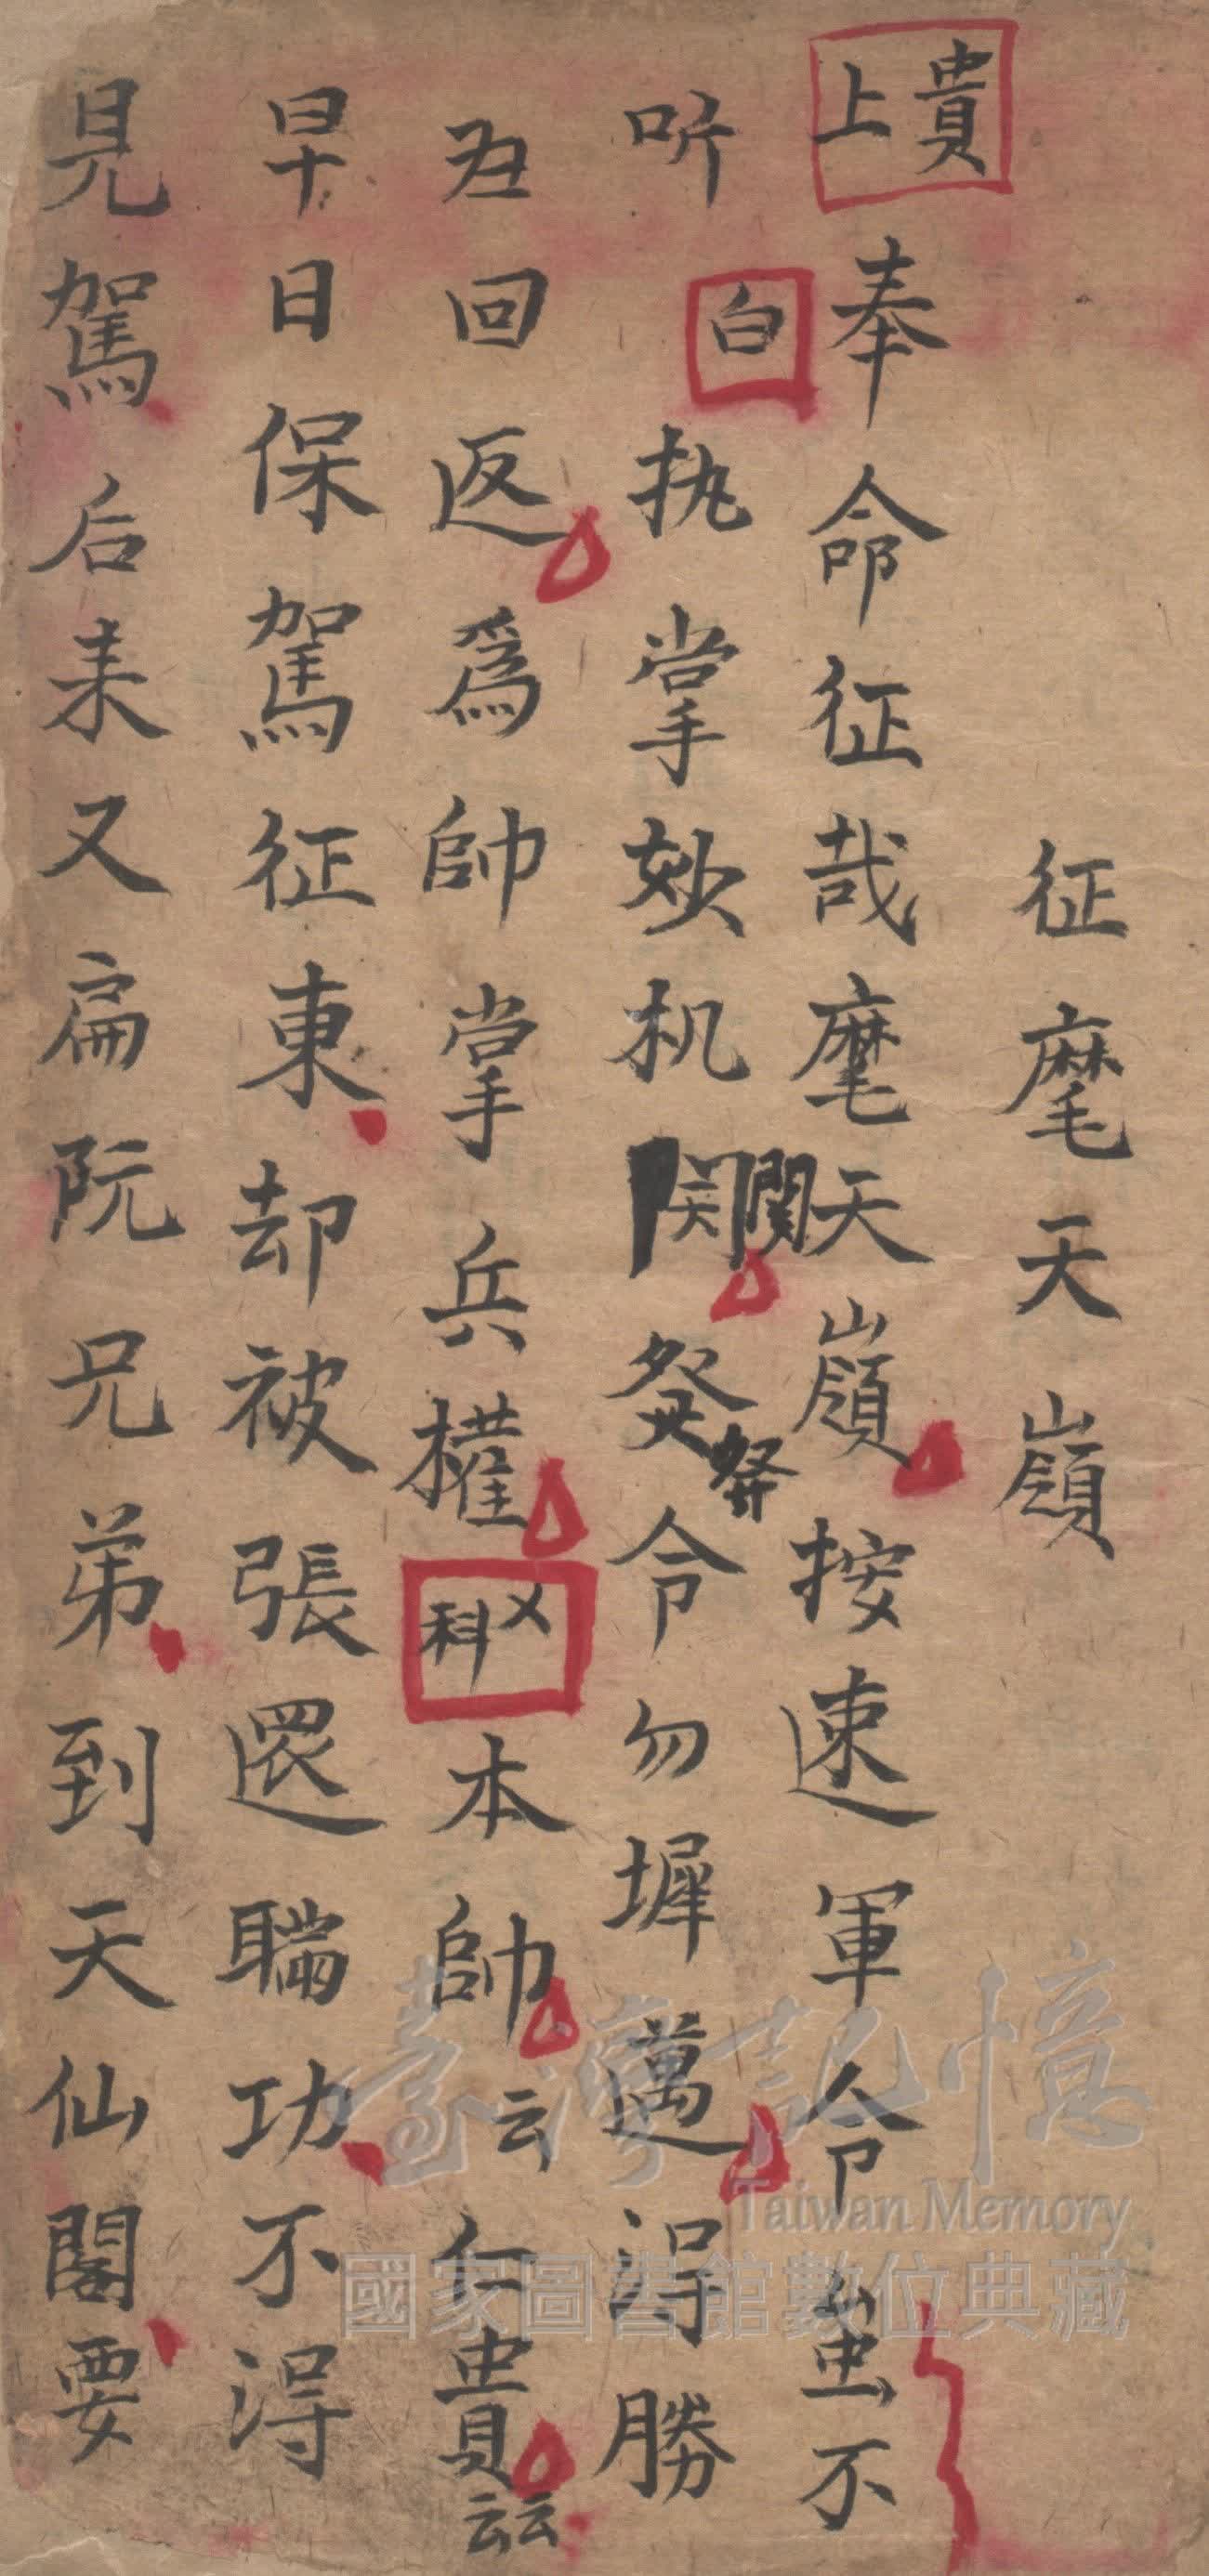 征麾天嶺
貴上 奉命征哉麾天嶺按速軍令蚩不
听 白 执掌妙机関発令勿墀邁淂勝
為回返爲帥掌兵權 乂科 本帥云仁貴云云
早日保駕征東却被張還瑞功不淂
見駕后来又扁阮兄弟到天仙閣要
臺灣記憶
Taiwan Memory
國家圖書館數位典藏